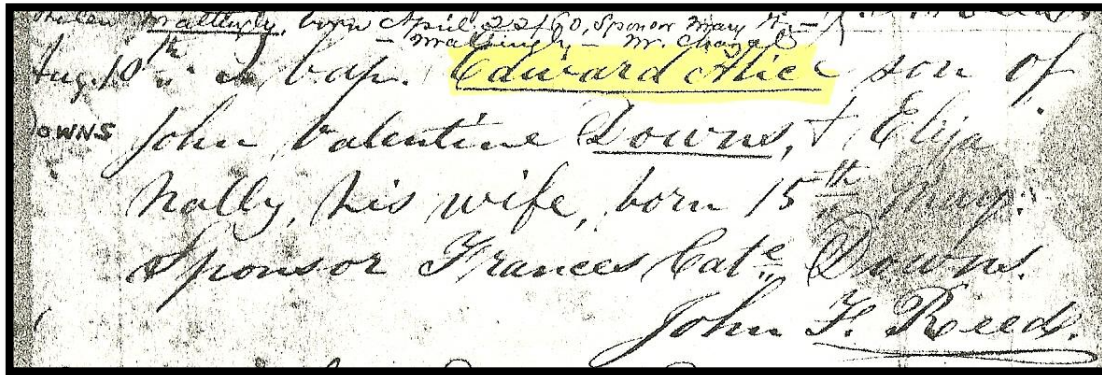 Mattingly, born April 22/60, Sponsor Mary
Mattingly — M. Chazal
Aug. 10th in bap. Edward Alice son of
DOWNS John Valentine Downs, + Eliza
Nally, his wife, born 15th May.
Sponsor Frances Cate Downs.
John F. Reed.